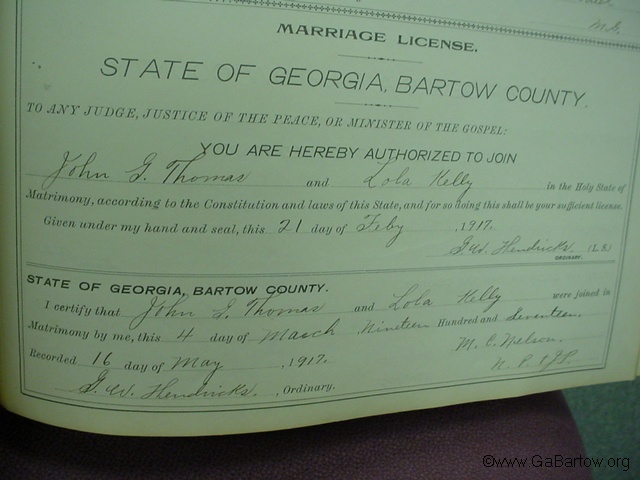 M.G.
MARRIAGE LICENSE.
STATE OF GEORGIA, BARTOW COUNTY.
TO ANY JUDGE, JUSTICE OF THE PEACE, OR MINISTER OF THE GOSPEL:
YOU ARE HEREBY AUTHORIZED TO JOIN
John G. Thomas and Lola Kelly in the Holy State of
Matrimony, according to the Constitution and laws of this State, and for so doing this shall be your sufficient license.
Given under my hand and seal, this 21 day of Feby , 1917.
G.W. Hendricks (L.S)
ORDINARY.
STATE OF GEORGIA, BARTOW COUNTY.
I certify that John G. Thomas and Lola Kelly were joined in
Matrimony by me, this 4 day of March Nineteen Hundred and Seventeen.
Recorded 16 day of May , 1917. M. C. Nelson.
G. W. Hendricks. , Ordinary. N. P. & J P.
©www.GaBartow.org